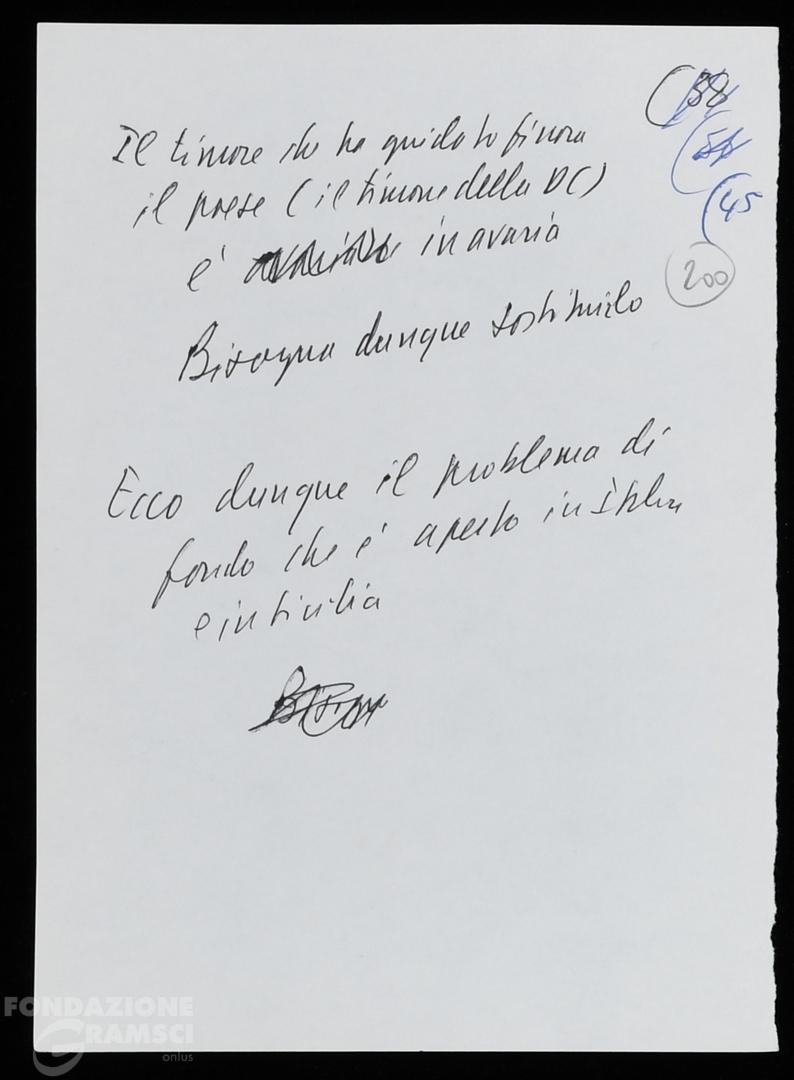 38
54
45
200
Il timone che ha guidato finora
il paese (il timone della DC)
è in avaria
Bisogna dunque sostituirlo
Ecco dunque il problema di
fondo che è aperto in Italia
e in Sicilia
FONDAZIONE
GRAMSCI
onlus